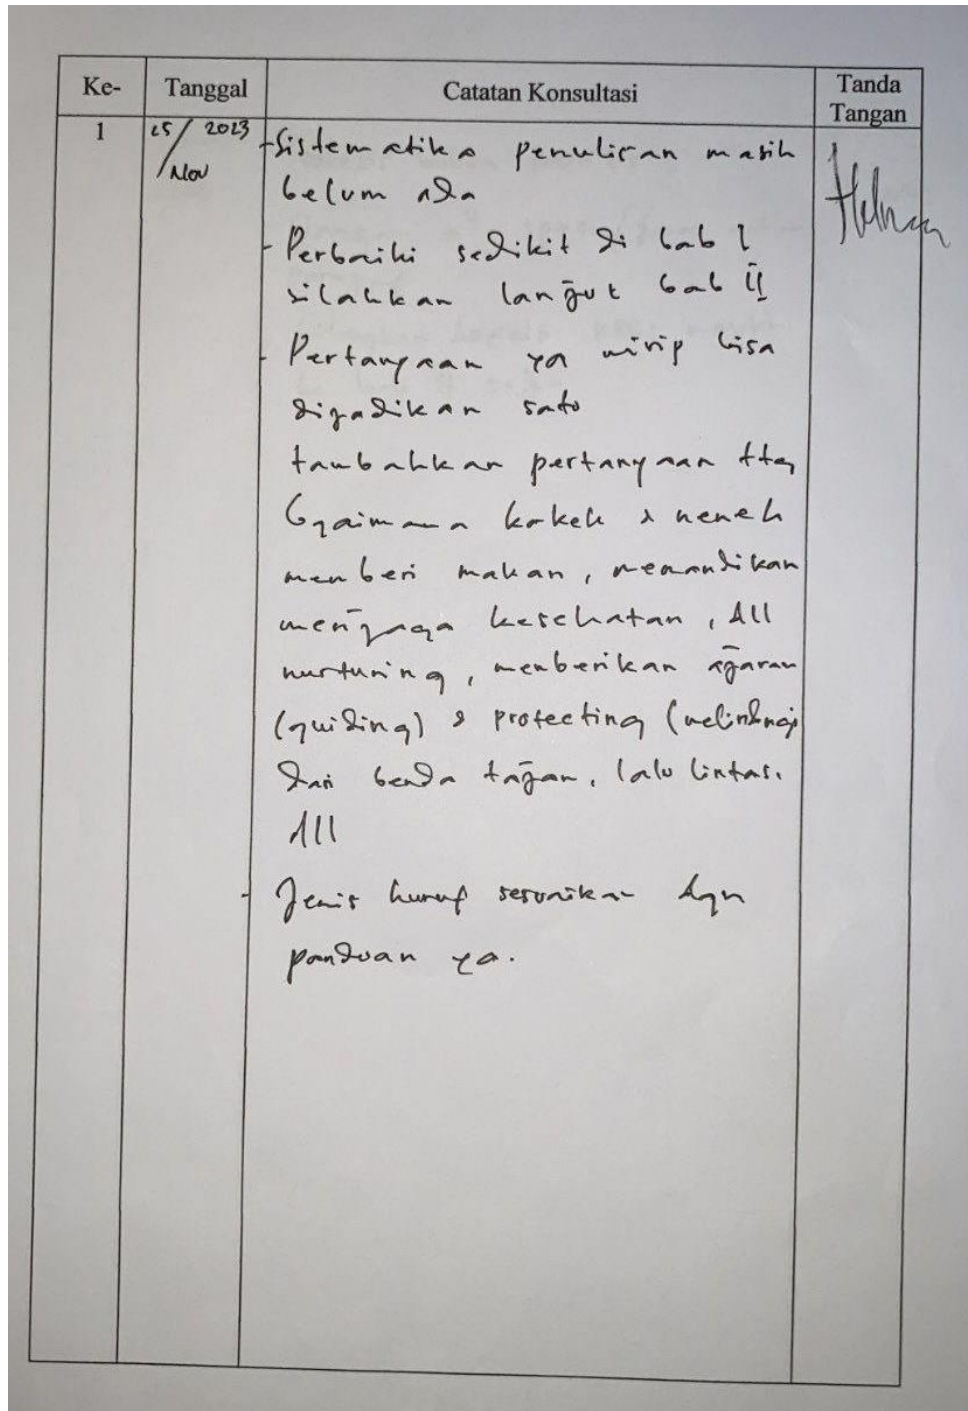 Ke- Tanggal Catatan Konsultasi Tanda Tangan
1 25/Nov 2023
- Sistematika penulisan masih
belum ada
- Perbaiki sedikit di bab I
silahkan lanjut bab II
- Pertanyaan yg mirip bisa
dijadikan satu
tambahkan pertanyaan ttg
bgaimana kakek & nenek
memberi makan, memandikan
menjaga kesehatan, dll
nurturing, memberikan ajaran
(guiding) & protecting (melindungi
dari benda tajam, lalu lintas.
dll
- Jenis huruf sesuaikan dgn
panduan ya.